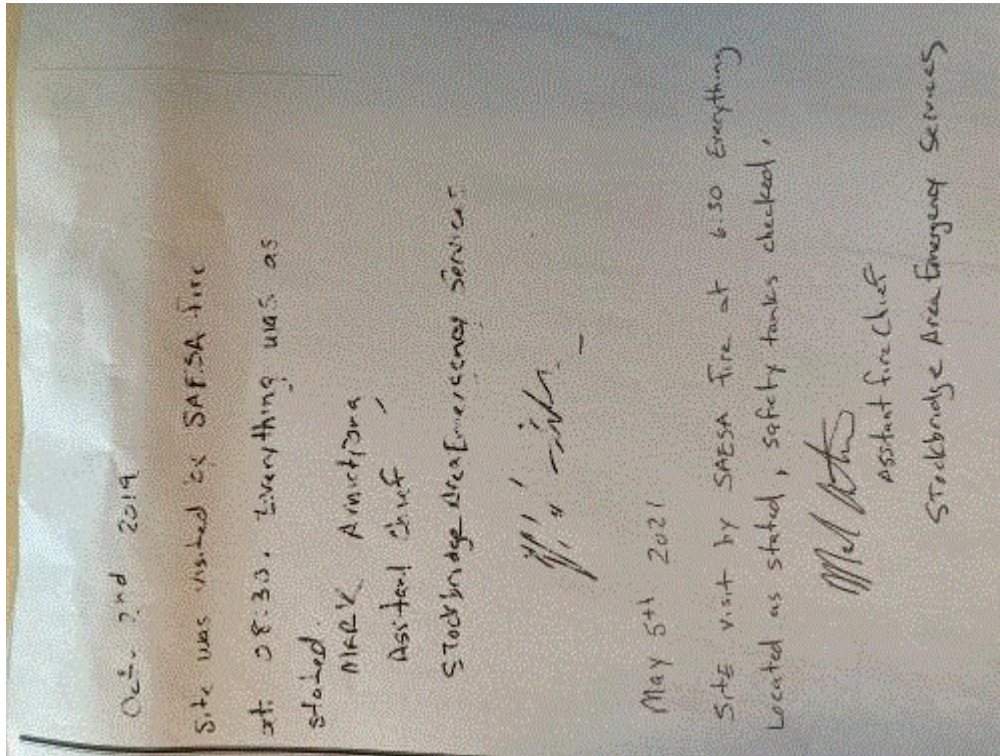 Oct. 2nd 2019
Site was visited by SAESA Fire
at 08:30. Everything was as
stated.
MARK
Assitant Chief
Stockbridge Area Emergency Services
May 5th 2021
Site visit by SAESA Fire at 6:30 Everything
Located as stated, safety tanks checked.
Assitant fire Chief
Stockbridge Area Emergency Services